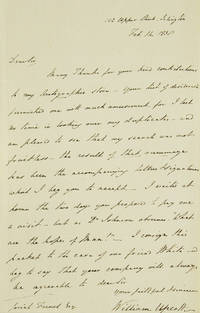 102 Upper Street, Islington
Feb. 16. 1838
Dear Sir,
Many Thanks for your kind contributions
to my Autographic store — Your list of desiderata
furnished me with much amusement for I lost
no time in looking over my Duplicates — and
am pleased to see that my search was not
fruitless — the result of that rummage
has been the accompanying Letters & Signatures
which I beg you to accept — I was at
home the two days you proposed to pay me
a visit — but as Dr Johnson observes "What
are the hopes of Man!" — I consign this
packet to the care of our friend White and
beg to say that your company will always
be agreeable to dear Sir
your
William Upcott
Esq